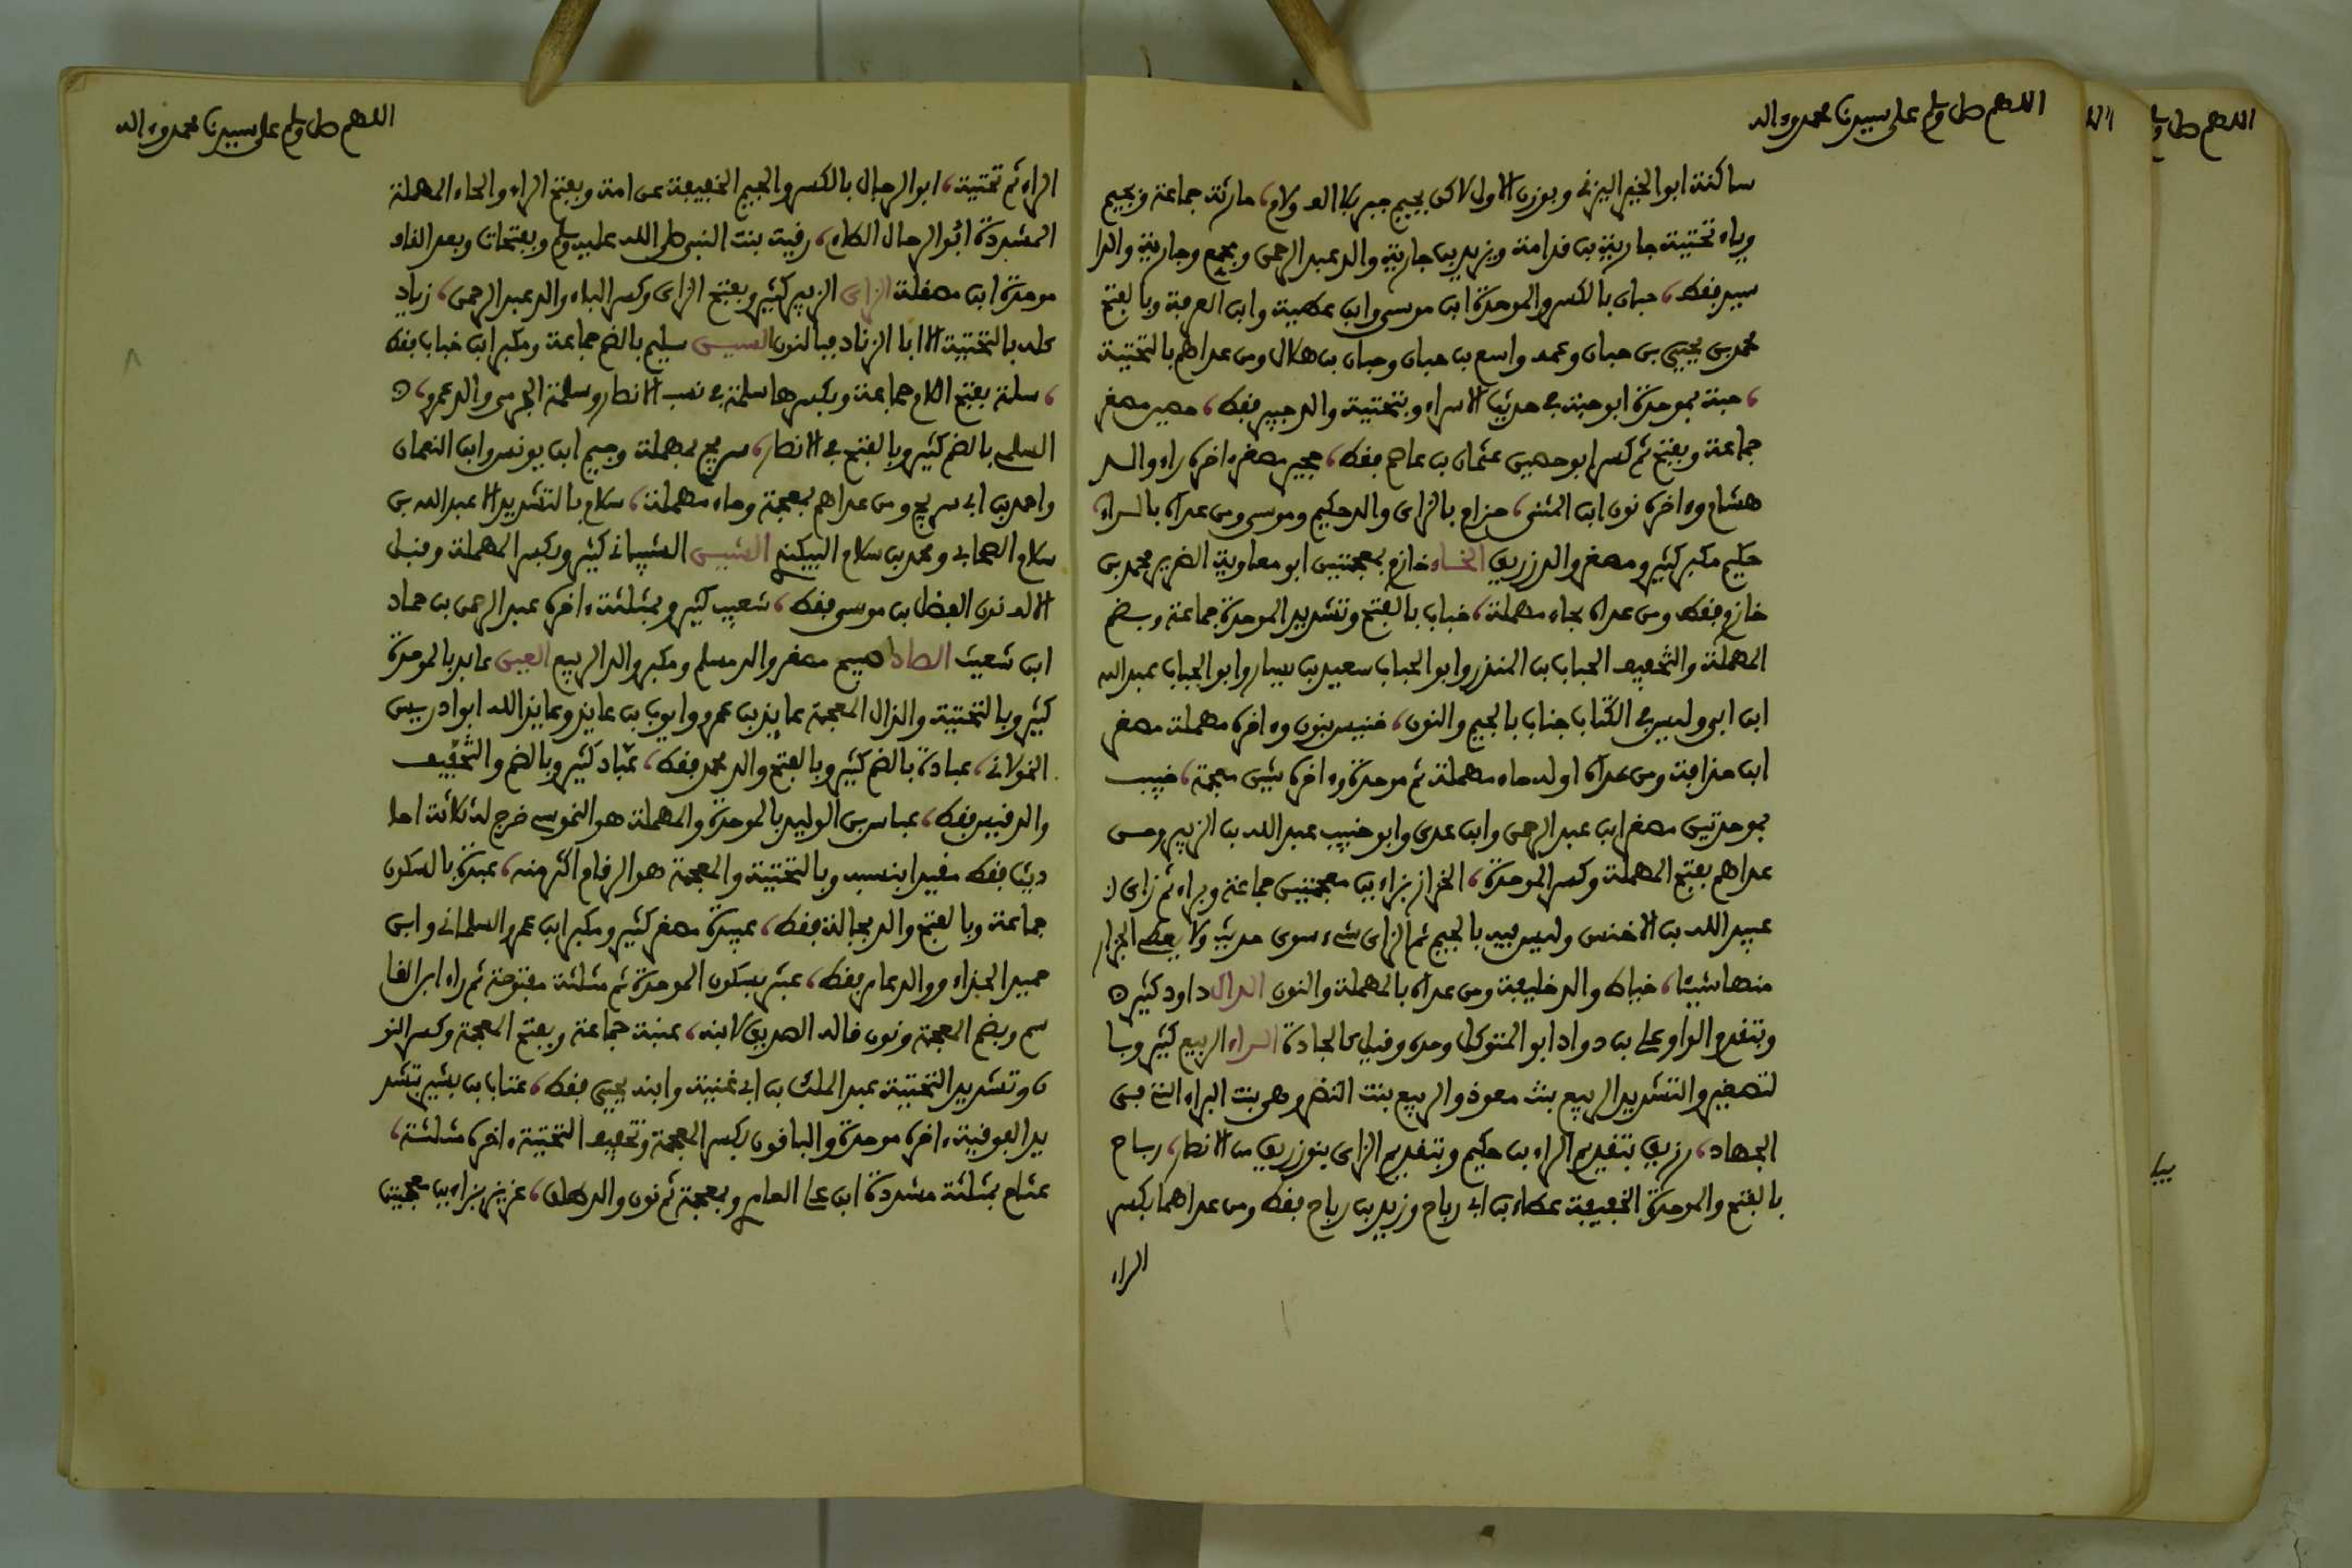 اللهم صل وسلم على سيدنا محمد وءاله
ساكنة ابو الخير اليزني وبوزن الاول لاكن بجيم جبر بلا الف ولام، حارثة جماعة وبجيم
وياء تحتية جارية بن قدامة ويزيد بن جارية والد عبد الرحمن ومجمع وجارية والد ا
سيد فقط، حبان بالكسر والموحدة ابن موسى وابن عطية وابن العرقة وبالفتح
محمد بن يحيى بن حبان وعمه واسع بن حبان وحبان بن هلال ومن عداهم بالتحتية
، حبة بموحدة ابو حبة في حديث الاسراء وبتحتية والد جبير فقط، حصين مصغر
جماعة وبفتح ثم كسر ابو حصين عثمان بن عاصم فقط، حجير مصغر ءاخره راء والد
هشام وءاخره نون ابن المثنى، حزام بالزاي والد حكيم وموسى ومن عداه بالراء،
حكيم مكبر كثير ومصغر والد زريق الخاء خازم بمعجمتين ابو معاوية الضرير محمد بن
خازم فقط ومن عداه بحاء مهملة، خباب بالفتح وتشديد الموحدة جماعة وبضم
المهملة والتخفيف الحباب بن المنذر وابو الحباب سعيد بن يسار وابو الحباب عبد الله
ابن ابي وليس في الكتاب جناب بالجيم والنون، خنيس بنون وءاخره مهملة مصغر
ابن حذافة ومن عداه اوله حاء مهملة ثم موحدة وءاخره شين معجمة، خبيب
بموحدتين مصغر ابن عبد الرحمن وابن عدي وابو خبيب عبد الله بن الزبير ومن
عداهم بفتح المهملة وكسر الموحدة، الخزاز بزاءين معجمتين جماعة وبراء ثم زاي
عبيد الله بن الاخنس وليس فيه بالجيم ثم الزاي شيء سوى حديث ولا يعط الجزار
منها شيئا، خياط والد خليفة ومن عداه بالمهملة والنون الدال داود كثير
وبتقديم الواو علي بن دواد ابو المتوكل وحده وقيل كالجادة الراء الربيع كثير وبا
لتصغير والتشديد الربيع بنت معوذ والربيع بنت النضر وهي بنت البراء التي في
الجهاد، رزيق بتقديم الراء بن حكيم وبتقديم الزاي بنو زريق من الانصار، رباح
بالفتح والموحدة الخفيفة عطاء بن ابي رباح وزيد بن رباح فقط ومن عداهما بكسر
الراء
اللهم صل وسلم على سيدنا محمد وءاله
الراء ثم تحتية، ابو الرجال بالكسر والجيم الخفيفة عن امة وبفتح الراء والحاء المهملة
المشددة ابو الرحال الطاء، رقية بنت النبي صلى الله عليه وسلم وبفتحات وبعد القاف
موحدة ابن مصقلة الزاي الزبير كثير وبفتح الزاي وكسر الباء والد عبد الرحمن، زياد
كله بالتحتية الا ابا الزناد فبالنون السين سليم بالضم جماعة ومكبر ابن خباب فقط
، سلمة بفتح اللام جماعة وبكسرها سلمة في نسب الانصار وسلمة الجرمي والد عمرو،
السلمي بالضم كثير وبالفتح في الانصار، سريج بمهملة وجيم ابن يونس وابن النعمان
واحمد بن ابي سريج ومن عداهم بمعجمة وحاء مهملة، سلام بالتشديد الا عبد الله بن
سلام الصحابي ومحمد بن سلام البيكندي الشين الشيباني كثير وبكسر المهملة وقبل
الالف نون الفضل بن موسى فقط، شعيب كثير وبمثلثة ءاخره عبد الرحمن بن حماد
ابن شعيث الصاد صبيح مصغر والد مسلم ومكبر والد الربيع العين عابد بالموحدة
كثير وبالتحتية والذال المعجمة عايذ بن عمرو وايوب بن عايذ وعايذ الله ابو ادريس
الخولاني، عبادة بالضم كثير وبالفتح والد محمد فقط، عباد كثير وبالضم والتخفيف
والد قيس فقط، عباس بن الوليد بالموحدة والمهملة هو النرسي خرج له ثلاثة احا
ديث فقط مقيدا بنسبه وبالتحتية والمعجمة هو الرقام اكثر منه، عبدة بالسكون
جماعة وبالفتح والد بجالة فقط، عبيدة مصغر كثير ومكبر ابن عمرو السلماني وابن
حميد الحذاء ووالد عامر فقط، عبثر بسكون الموحدة ثم مثلثة مفتوحة ثم راء ابن القا
سم وبضم المعجمة ونون قاله الصديق لابنه، عتبة جماعة وبفتح المعجمة وكسر النو
ن وتشديد التحتية عبد الملك بن ابي غنية وابنه يحيى فقط، عتاب بن بشير بتشد
يد الفوقية ءاخره موحدة والباقون بكسر المعجمة وتخفيف التحتية ءاخره مثلثة،
عثام بمثلثة مشددة ابن علي العامري وبمعجمة ثم نون والد طلق، عزيز بزاءين معجمتين